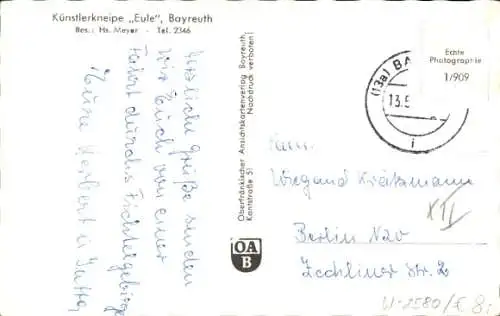 Künstlerkneipe „Eule", Bayreuth
Bes.: Hs. Meyer - Tel. 2346
Herzliche Grüße senden
wir Euch von einer
Fahrt durchs Fichtelgebirge
Eure Herbert u. Jutta
Oberfränkischer Ansichtskartenverlag Bayreuth
Kantstraße 51 Nachdruck verboten!
OA
B
(13a) BA
13.
i
Echte
Photographie
1/909
Fam.
Wiegand
XII
Berlin N20
Zechliner Str. 2